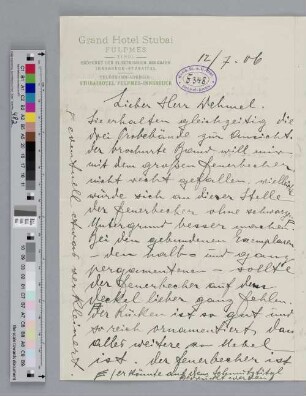 Grand Hotel Stubai
FULPMES
TIROL
12/7.06
Lieber Herr Dehmel.
Sie erhalten gleichzeitig die
drei Probebände zur Ansicht.
der brochürte Band will mir
mit dem großen Feuerbecher
nicht recht gefallen. vielleicht
würde sich an dieser Stelle
der Feuerbecher ohne schwarzen
Untergrund besser machen.
Bei den gebundenen Exemplaren
– den halb- und ganz
pergamentenen – sollte
der Feuerbecher auf dem
Deckel lieber ganz fehlen.
Der Rücken ist so gut und
so reich ornamentiert, daß
alles weitere von Uebel
ist. der Feuerbecher ist
(er könnte auf dem Schmutztitel
eventuell etwas verkleinert